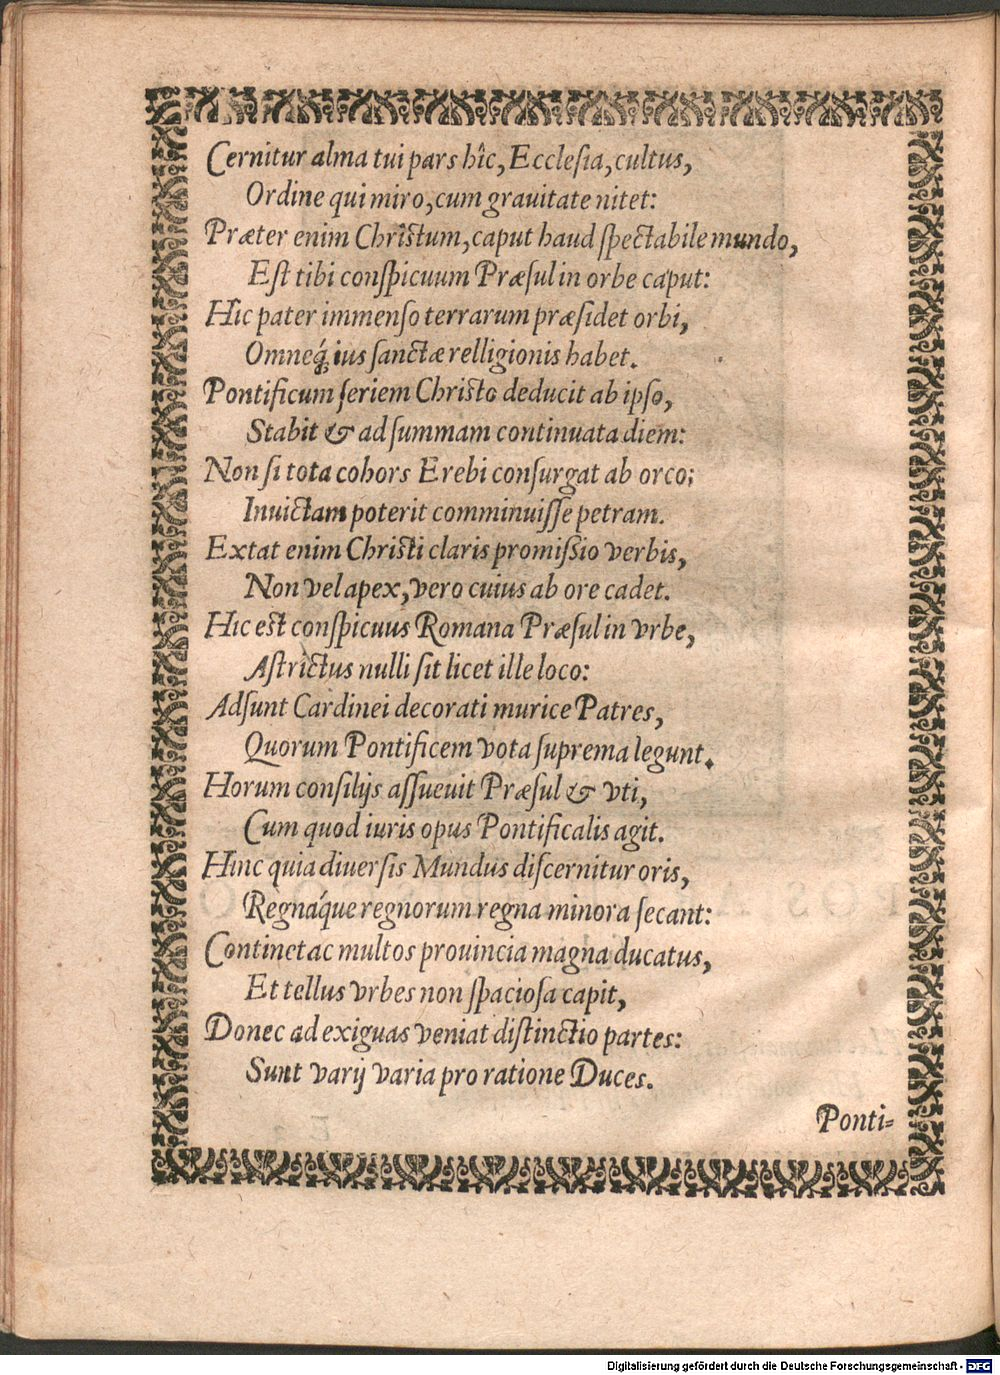 Cernitur alma tui pars hîc, Ecclesia, cultus,
Ordine qui miro, cum grauitate nitet:
Præter enim Christum, caput haud spectabile mundo,
Est tibi conspicuum Præsul in orbe caput:
Hic pater immenso terrarum præsidet orbi,
Omneq́; ius sanctæ relligionis habet.
Pontificum seriem Christo deducit ab ipso,
Stabit & ad summam continuata diem:
Non si tota cohors Erebi consurgat ab orco;
Inuictam poterit comminuisse petram.
Extat enim Christi claris promissio verbis,
Non vel apex, vero cuius ab ore cadet.
Hic est conspicuus Romana Præsul in vrbe,
Astrictus nulli sit licet ille loco:
Adsunt Cardinei decorati murice Patres,
Quorum Pontificem vota suprema legunt.
Horum consilijs assueuit Præsul & vti,
Cum quod iuris opus Pontificalis agit.
Hinc quia diuersis Mundus discernitur oris,
Regnáque regnorum regna minora secant:
Continet ac multos prouincia magna ducatus,
Et tellus vrbes non spaciosa capit,
Donec ad exiguas veniat distinctio partes:
Sunt varij varia pro ratione Duces.
Ponti-
Digitalisierung gefördert durch die Deutsche Forschungsgemeinschaft - DFG